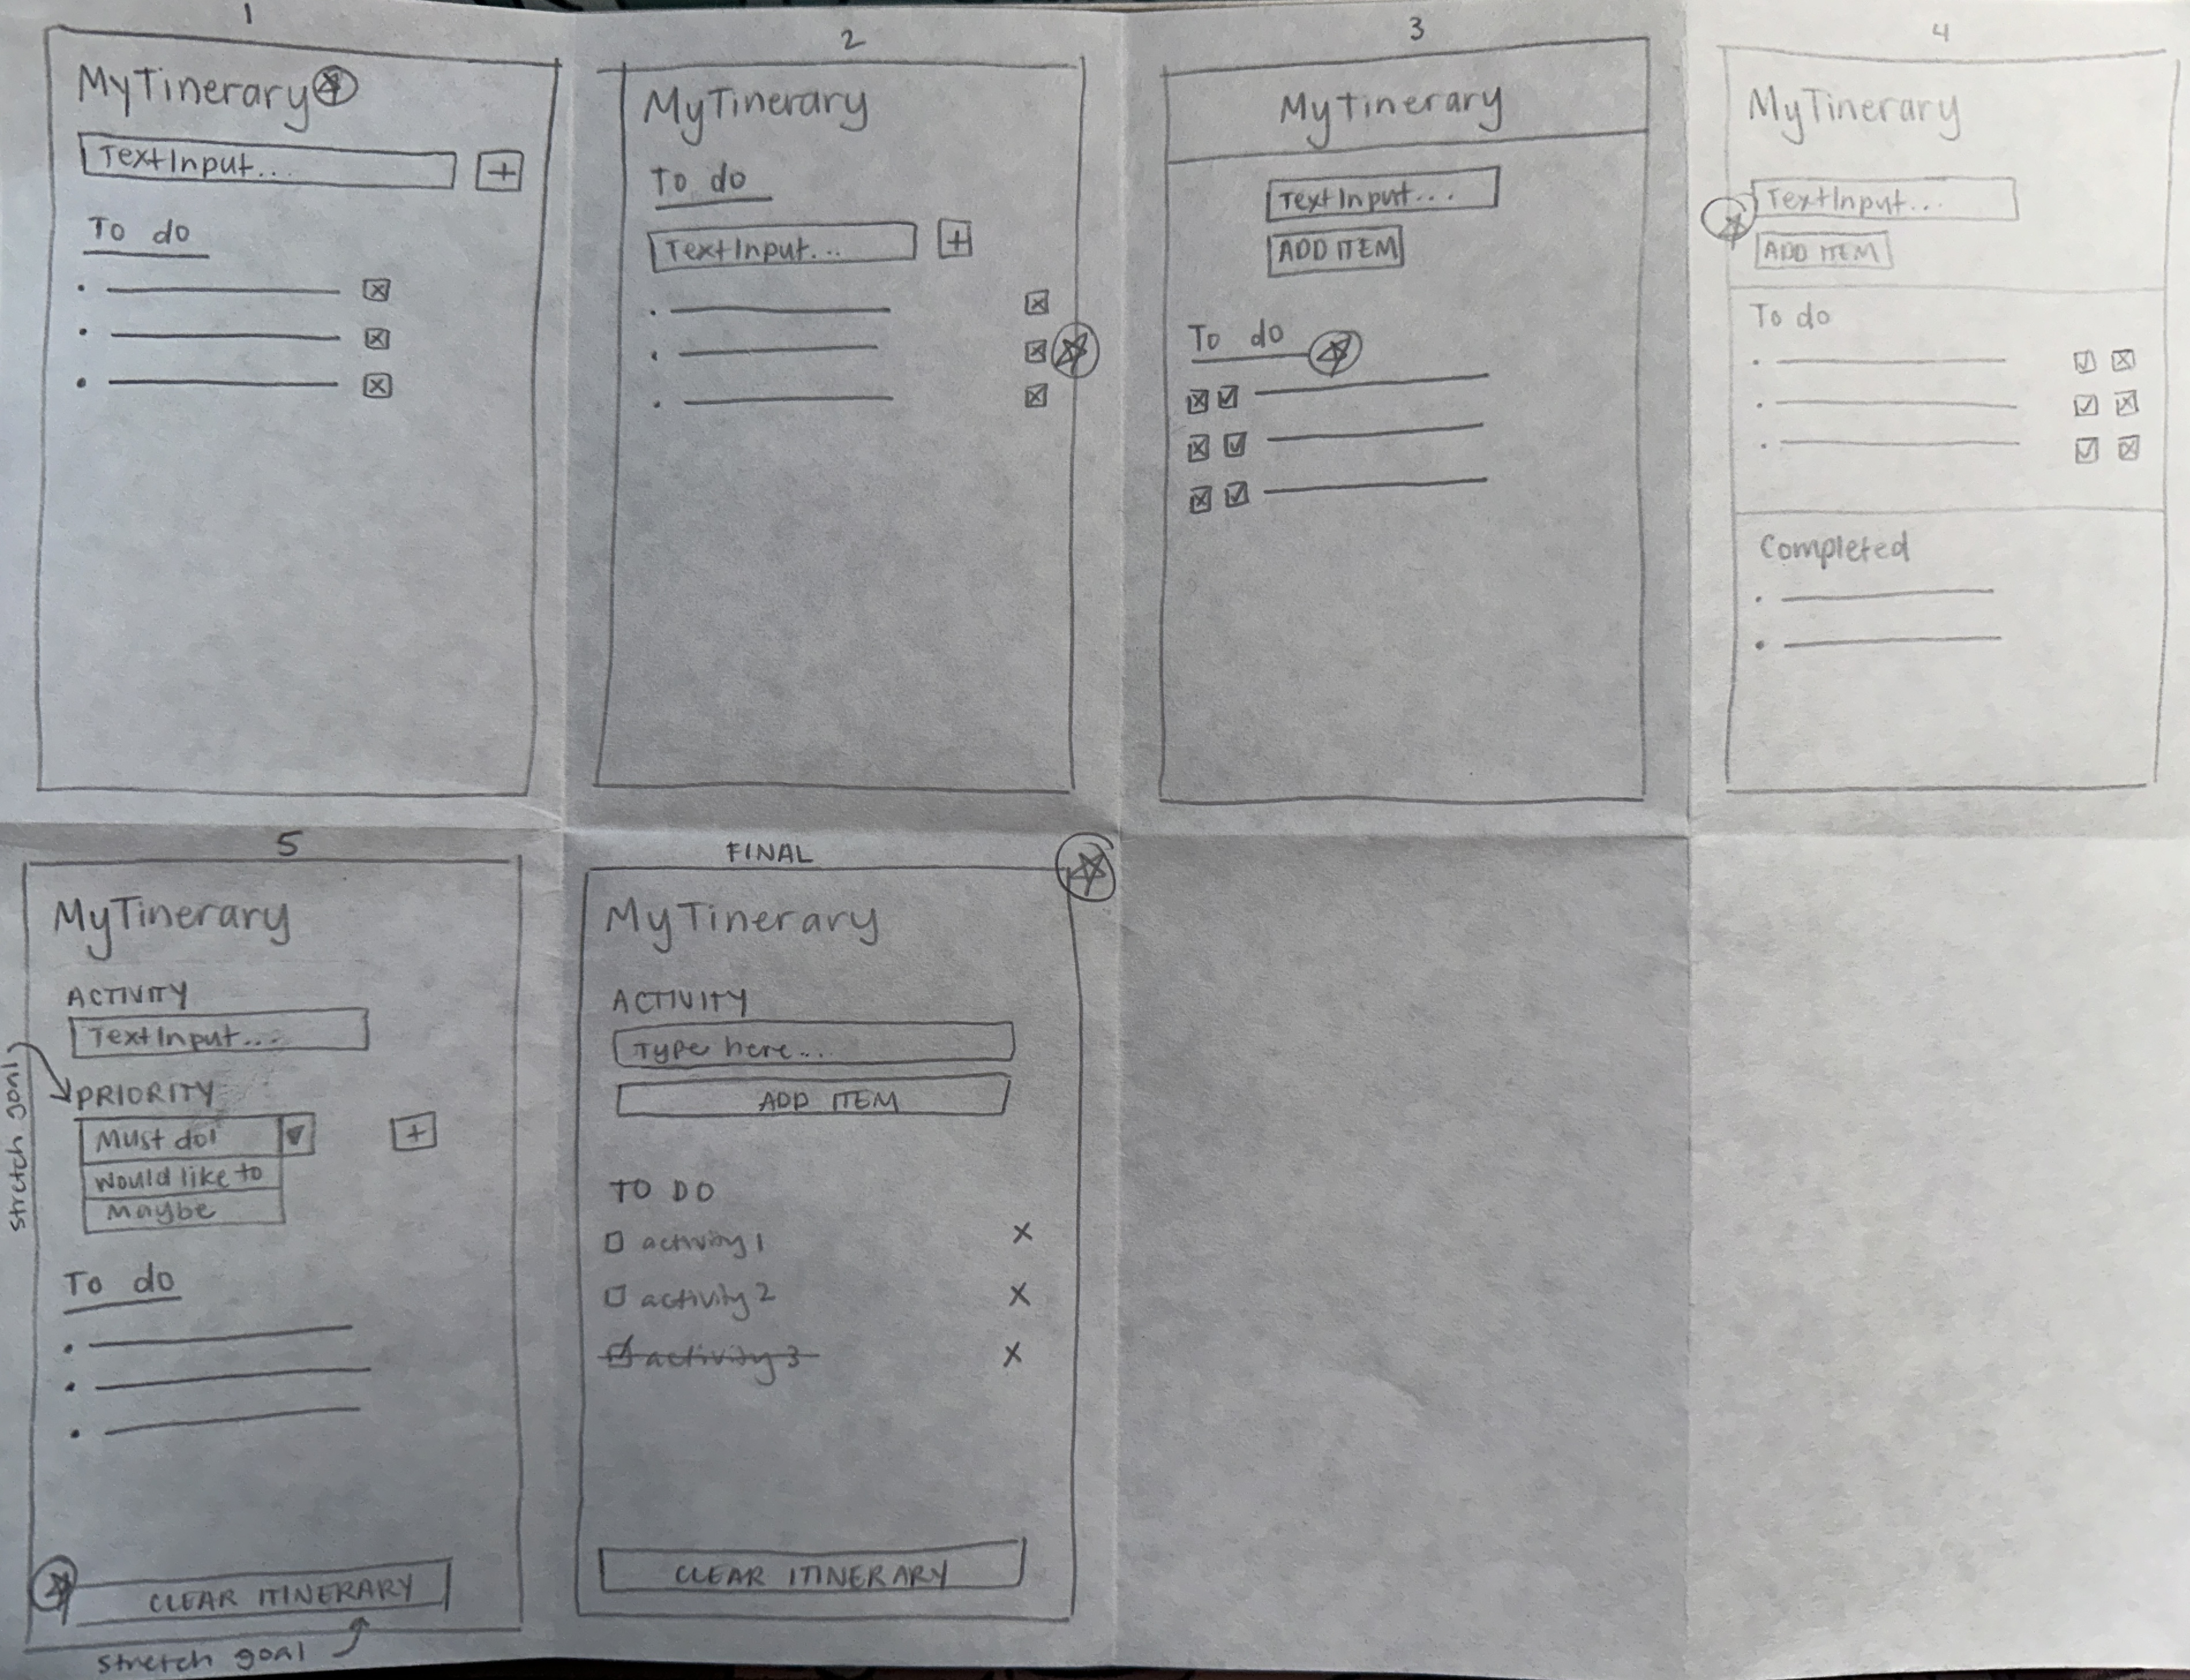 1
MyTinerary
TextInput...
+
To do
2
MyTinerary
To do
TextInput...
+
3
MyTinerary
TextInput...
ADD ITEM
To do
4
MyTinerary
TextInput...
ADD ITEM
To do
Completed
5
MyTinerary
ACTIVITY
TextInput...
stretch goal
PRIORITY
Must do!
+
Would like to
Maybe
To do
CLEAR ITINERARY
stretch goal
FINAL
MyTinerary
ACTIVITY
Type here...
ADD ITEM
TO DO
activity 1 X
activity 2 X
activity 3 X
CLEAR ITINERARY